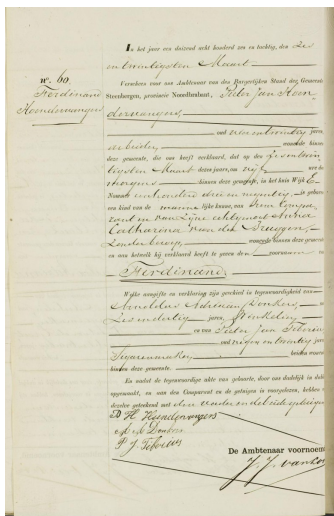 In het jaar een duizend acht honderd zes en tachtig, den zes
en twintigsten Maart
No. 60.
Ferdinand
Hoendervangers
Verscheen voor ons Ambtenaar van den Burgerlijken Stand der Gemeente
Steenbergen, provincie Noordbrabant, Pieter Jan Hoen
dervangers,
oud jaren,
arbeider, wonende binnen
deze gemeente, die ons heeft verklaard, dat op den zes en twin
tigsten Maart dezes jaars, om vijf ure des
morgens binnen deze gemeente, in het huis Wijk E
Nommer een honderd drie en negentig is geboren
een kind van de mannelijke kunne, van hem compa
rant en van zijne echtgenoot Anna
Catharina van der Bruggen,
zonder beroep, wonende binnen deze gemeente
en aan hetwelk hij verklaard heeft te geven den voornaam van
Ferdinand
Welke aangifte en verklaring zijn geschied in tegenwoordigheid van
Arnoldus Adriaan Donkers, oud
zes en dertig jaren, Winkelier,
en van Pieter Jan
oud negen en twintig jaren
Sigarenmaker, beiden wonende
binnen deze gemeente.
En nadat de tegenwoordige akte van geboorte, door ons dadelijk in dubbel
opgemaakt, en aan den Comparant en de getuigen is voorgelezen, hebben
dezelve geteekend met den vader en de beide getuigen
Hoendervangers
A A Donkers
P. J.
De Ambtenaar voornoemd
J. J. van